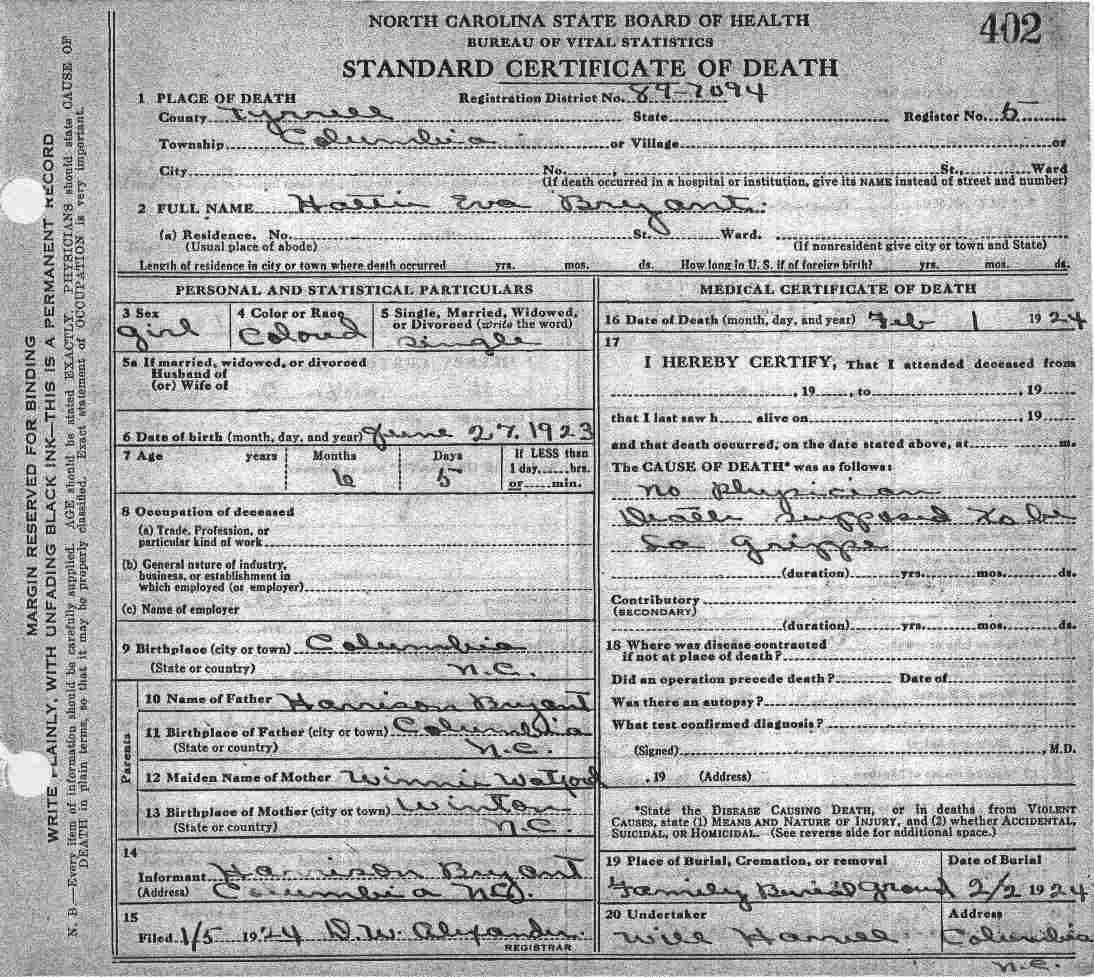 NORTH CAROLINA STATE BOARD OF HEALTH
402
BUREAU OF VITAL STATISTICS
STANDARD CERTIFICATE OF DEATH
1 PLACE OF DEATH Registration District No. 89-7094
County Tyrrell State Register No. 5
Township Columbia or Village or
City No. , St., Ward
(If death occurred in a hospital or institution, give its NAME instead of street and number)
2 FULL NAME Hattie Eva Bryant.
(a) Residence. No. St. Ward.
(Usual place of abode) (If nonresident give city or town and State)
Length of residence in city or town where death occurred yrs. mos. ds. How long in U. S. if of foreign birth? yrs. mos. ds.
PERSONAL AND STATISTICAL PARTICULARS
3 Sex 4 Color or Race 5 Single, Married, Widowed,
or Divorced (write the word)
girl Colored single
5a If married, widowed, or divorced
Husband of
(or) Wife of
6 Date of birth (month, day, and year) June 27, 1923
7 Age years Months Days If LESS than
1 day, hrs.
or min.
6 5
8 Occupation of deceased
(a) Trade, Profession, or
particular kind of work
(b) General nature of industry,
business, or establishment in
which employed (or employer)
(c) Name of employer
9 Birthplace (city or town) Columbia
(State or country) N.C.
Parents
10 Name of Father Harrison Bryant
11 Birthplace of Father (city or town) Columbia
(State or country) N.C.
12 Maiden Name of Mother Winnie Watford
13 Birthplace of Mother (city or town) Winton
(State or country) N.C.
14
Informant Harrison Bryant
(Address) Columbia N.C.
15
Filed 1/5 1924 D.W. Alexander
REGISTRAR
MEDICAL CERTIFICATE OF DEATH
16 Date of Death (month, day, and year) Feb 1 1924
17
I HEREBY CERTIFY, That I attended deceased from
, 19 , to , 19
that I last saw h alive on , 19
and that death occurred, on the date stated above, at m.
The CAUSE OF DEATH* was as follows:
No Physician
Death supposed to be
La Grippe
(duration) yrs. mos. ds.
Contributory
(SECONDARY)
(duration) yrs. mos. ds.
18 Where was disease contracted
if not at place of death?
Did an operation precede death? Date of
Was there an autopsy?
What test confirmed diagnosis?
(Signed) , M.D.
, 19 (Address)
*State the DISEASE CAUSING DEATH, or in deaths from VIOLENT
CAUSES, state (1) MEANS AND NATURE OF INJURY, and (2) whether ACCIDENTAL,
SUICIDAL, OR HOMICIDAL. (See reverse side for additional space.)
19 Place of Burial, Cremation, or removal Date of Burial
Family Burial Ground 2/2 1924
20 Undertaker Address
Will Harrell Columbia
N.C.
MARGIN RESERVED FOR BINDING
WRITE PLAINLY, WITH UNFADING BLACK INK—THIS IS A PERMANENT RECORD
N. B.—Every item of information should be carefully supplied. AGE should be stated EXACTLY. PHYSICIANS should state CAUSE OF
DEATH in plain terms, so that it may be properly classified. Exact statement of OCCUPATION is very important.